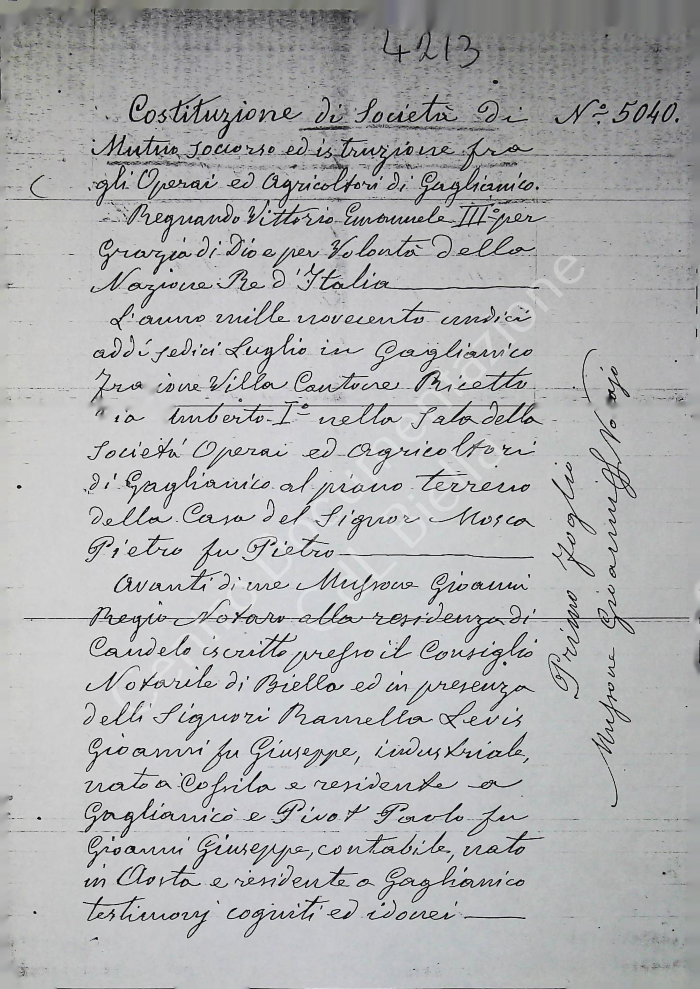 4213
Costituzione di Società di Nº 5040.
Mutuo soccorso ed istruzione fra
gli Operai ed Agricoltori di Gaglianico.
Regnando Vittorio Emanuele IIIº per
Grazia di Dio e per Volontà della
Nazione Re d'Italia
L'anno mille novecento undici
addì sedici Luglio in Gaglianico
Villa Cantone Ricetto
Umberto Iº nella Sala della
Società Operai ed Agricoltori
di Gaglianico al piano terreno
della Casa del Signor Mosca
Pietro fu Pietro
Avanti di me Mussone Gioanni
Regio Notaro alla residenza di
Candelo iscritto presso il Consiglio
Notarile di Biella ed in presenza
delli Signori Ramella Levis
Gioanni fu Giuseppe, industriale,
nato a Cossila e residente a
Gaglianico e Pivot Paolo fu
Gioanni Giuseppe, contabile, nato
in Aosta e residente a Gaglianico
testimonj cogniti ed idonei
Primo foglio
Mussone Gioanni